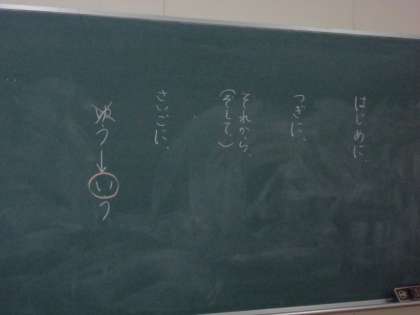 はじめに、
つぎに、
それから、
(そして、)
さいごに、
ゆう→いう